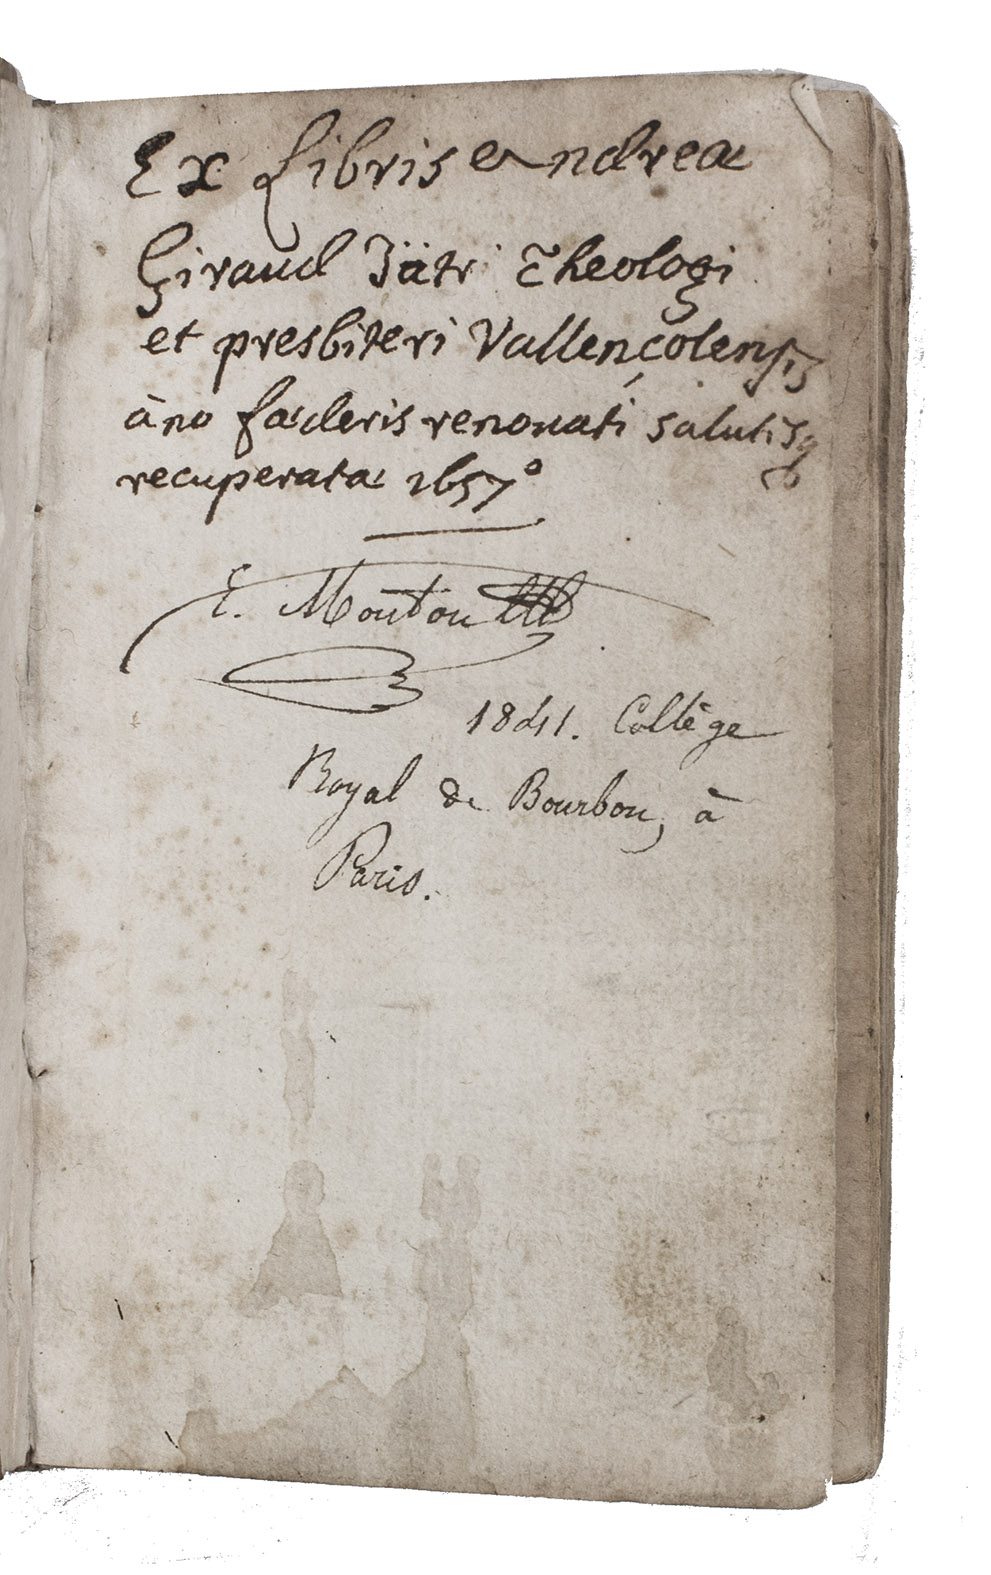 Ex Libris Andreæ
Giraud Iätri Theologi
et presbiteri Vallencolensis
àno fæderis renouati salutisq
recuperatæ 1657°
E. Mouton
1841. Collège
Royal de Bourbon, à
Paris.